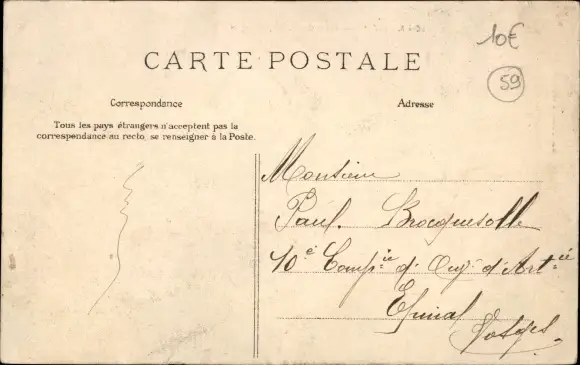 10€
CARTE POSTALE
59
Correspondance
Adresse
Tous les pays étrangers n'acceptent pas la
correspondance au recto, se renseigner à la Poste.
Monsieur
Paul. Brocquevolle
10e Compie d' Ouv. d'Artie
Epinal
Vosges